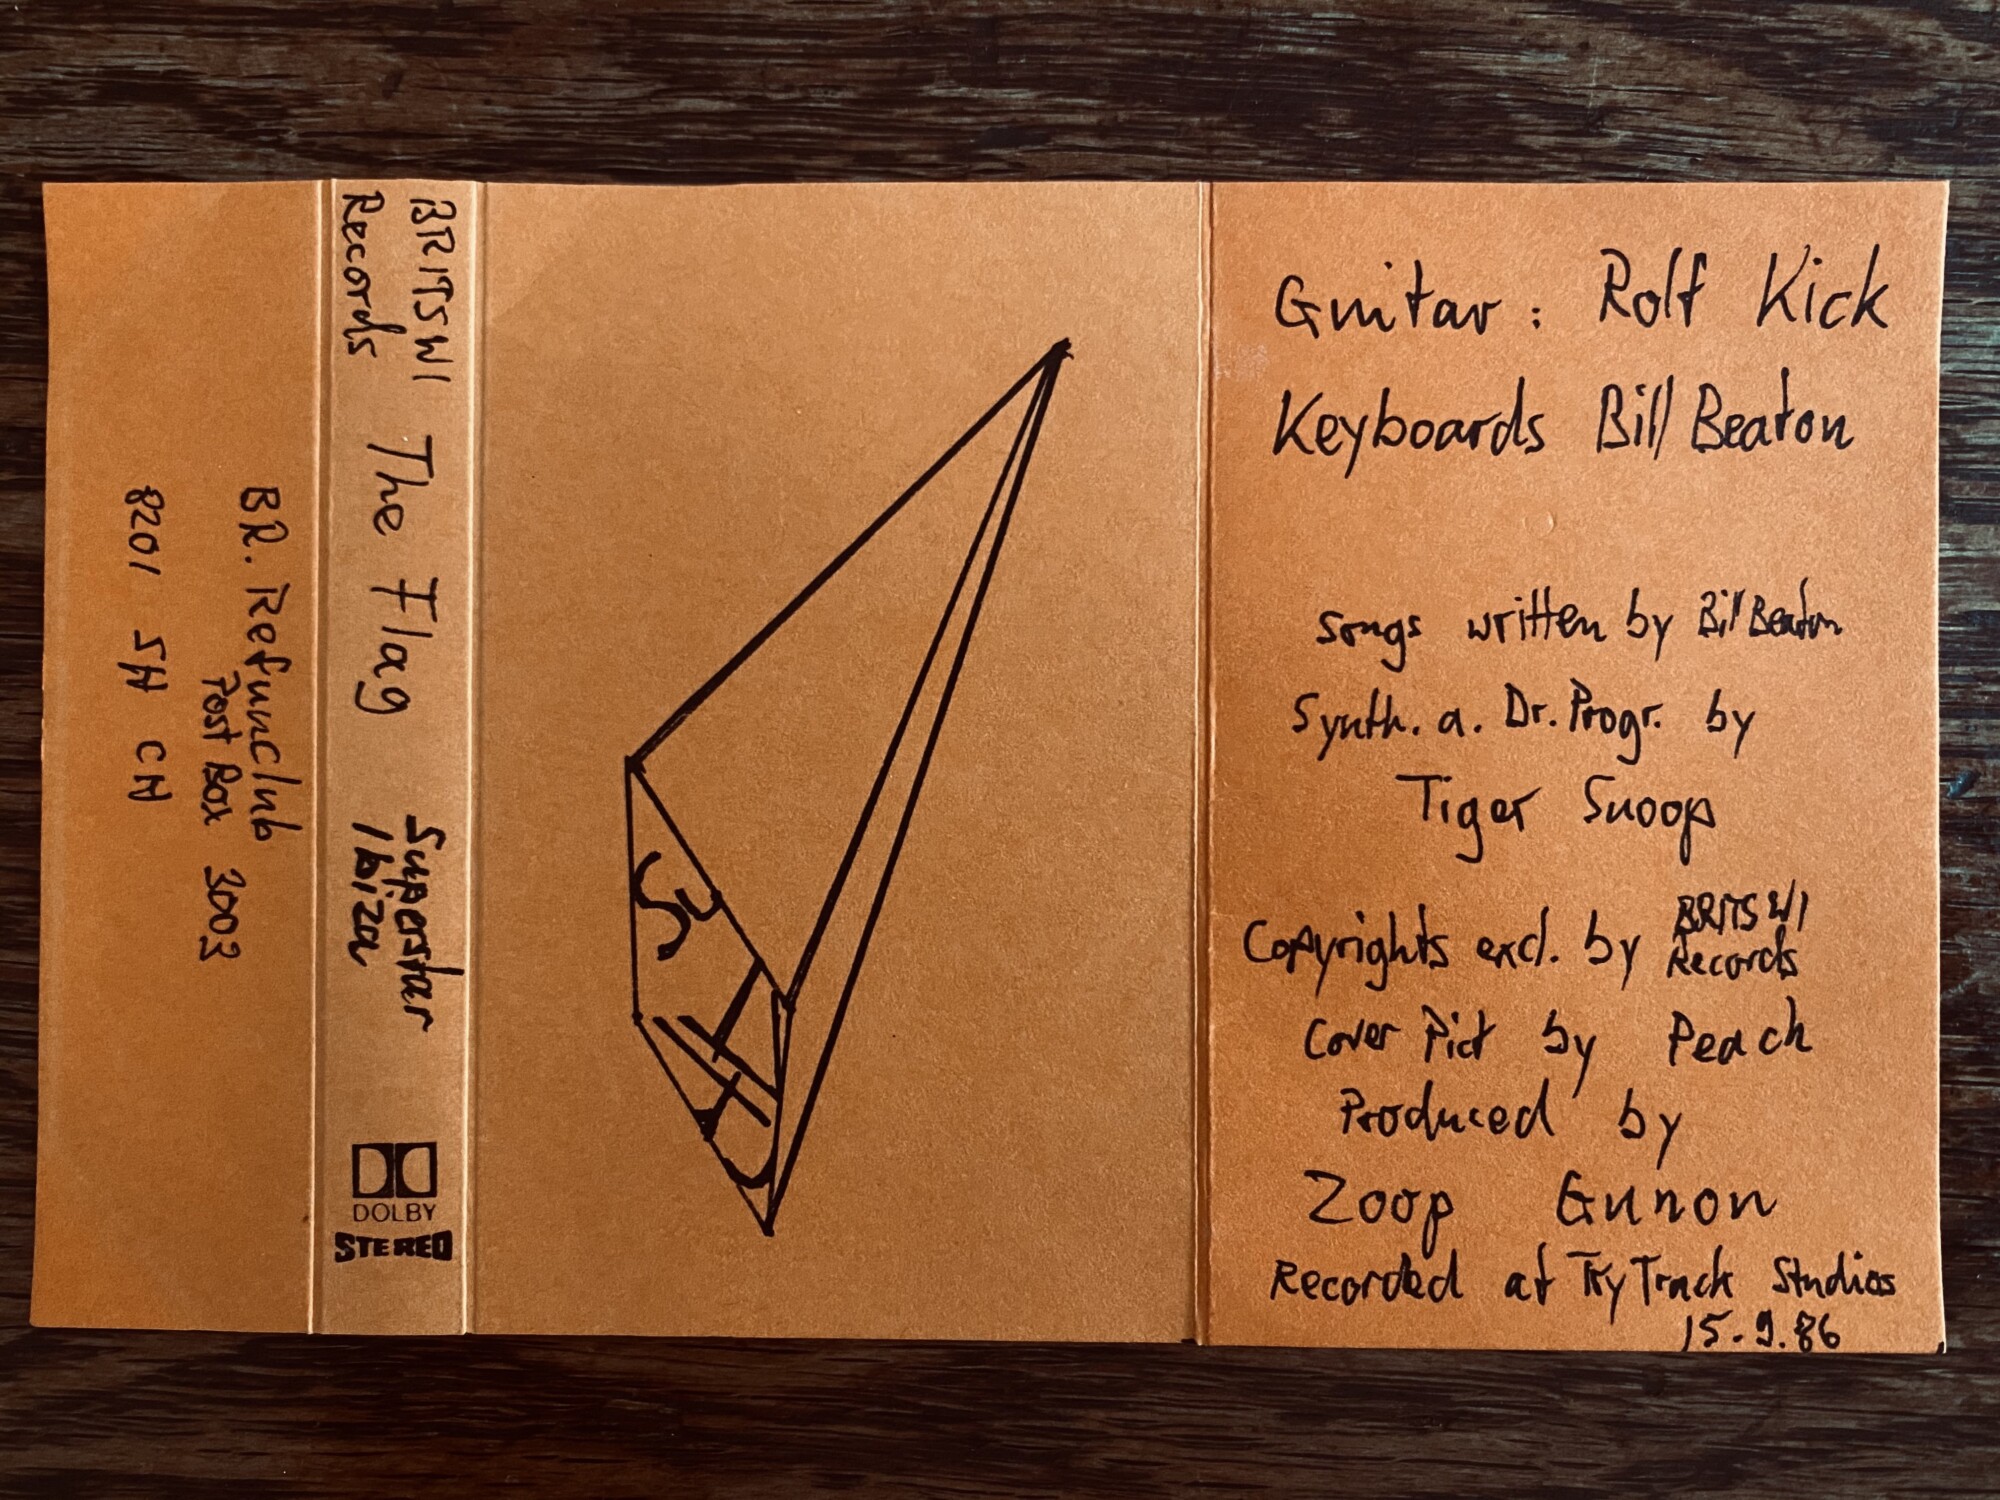 BR. Refunclub
Post Box 3003
8201 SH CH
BRITSWI
Records
The Flag
Superstar
Ibiza
DOLBY
STEREO
Guitar : Rolf Kick
Keyboards Bill Beaton
Songs written by Bill Beaton
Synth. a. Dr. Progr. by
Tiger Snoop
Copyrights excl. by BRITSWI
Records
Cover Pict by Peach
Produced by
Zoop Gunon
Recorded at TryTrack Studios
15.9.86